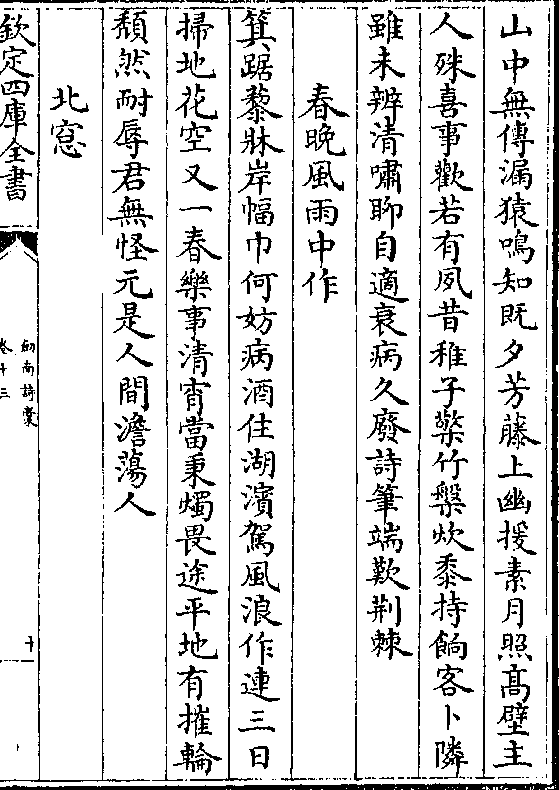 山中無傳漏猿鳴知既夕芳藤上幽援素月照髙壁主
人殊喜事歡若有夙昔稚子檠竹槃炊黍持餉客卜隣
雖未辨清嘯聊自適衰病久廢詩筆端歎荆棘
春晚風雨中作
箕踞藜牀岸幅巾何妨病酒住湖濱駕風浪作連三日
掃地花空又一春樂事清宵當秉燭畏途平地有摧輪
頽然耐辱君無怪元是人間澹蕩人
北窓
欽定四庫全書
劒南詩槀
卷十三
十